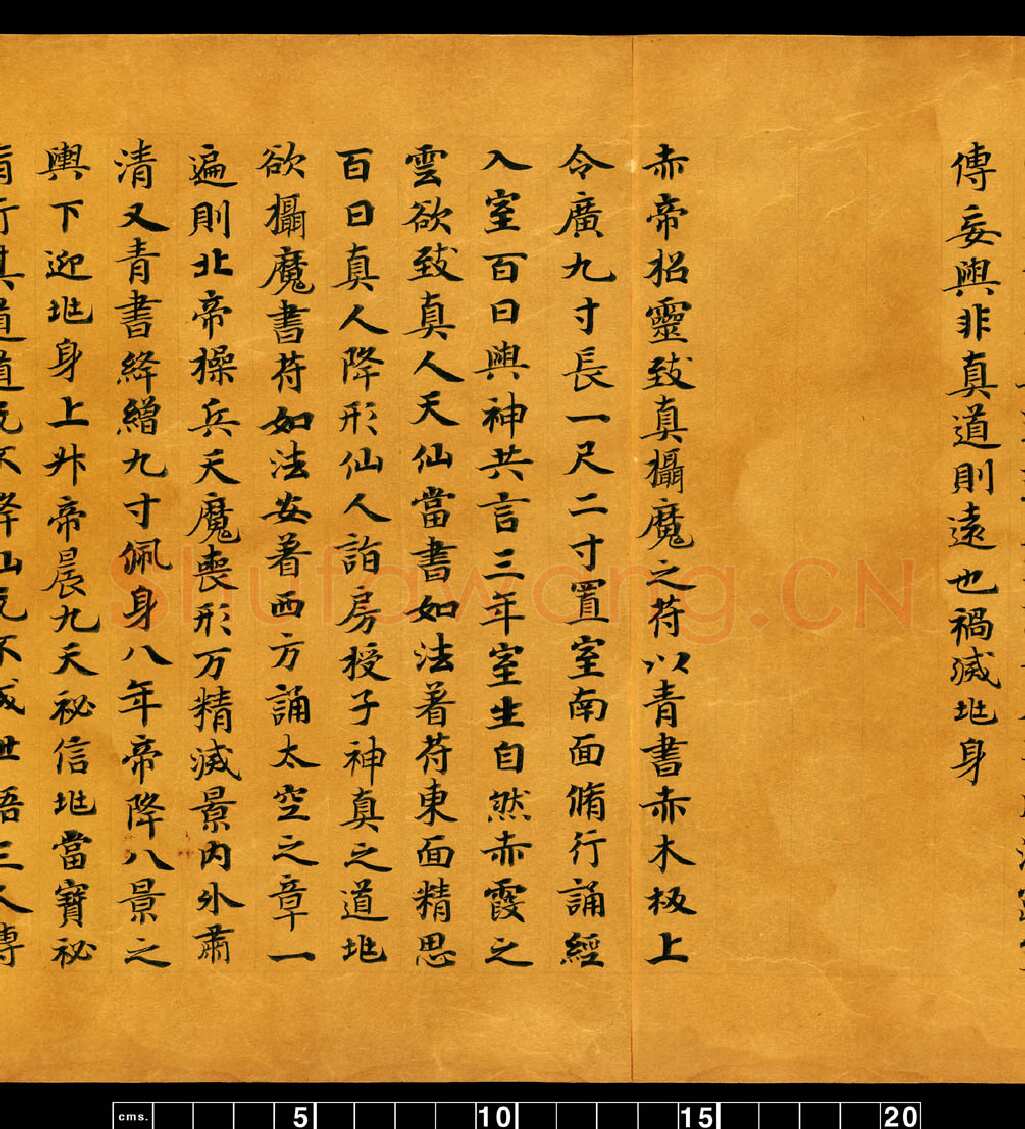 傳妄與非真道則遠也禍滅地身
赤帝招靈致真攝魔之苻以青書赤木板上
令廣九寸長一尺二寸置室南面脩行誦經
入室百日與神共言三年室生自然赤霞之
雲欲致真人天仙當書如法着苻東面精思
百日真人降形仙人詣房授子神真之道地
欲攝魔書苻如法安着西方誦太空之章一
遍則北帝操兵天魔喪形万精滅景内外肅
清又青書絳繒九寸佩身八年帝降八景之
輿下迎地身上升帝晨九天祕信地當寶祕
Shufawang.CN
cms. 5 10 15 20